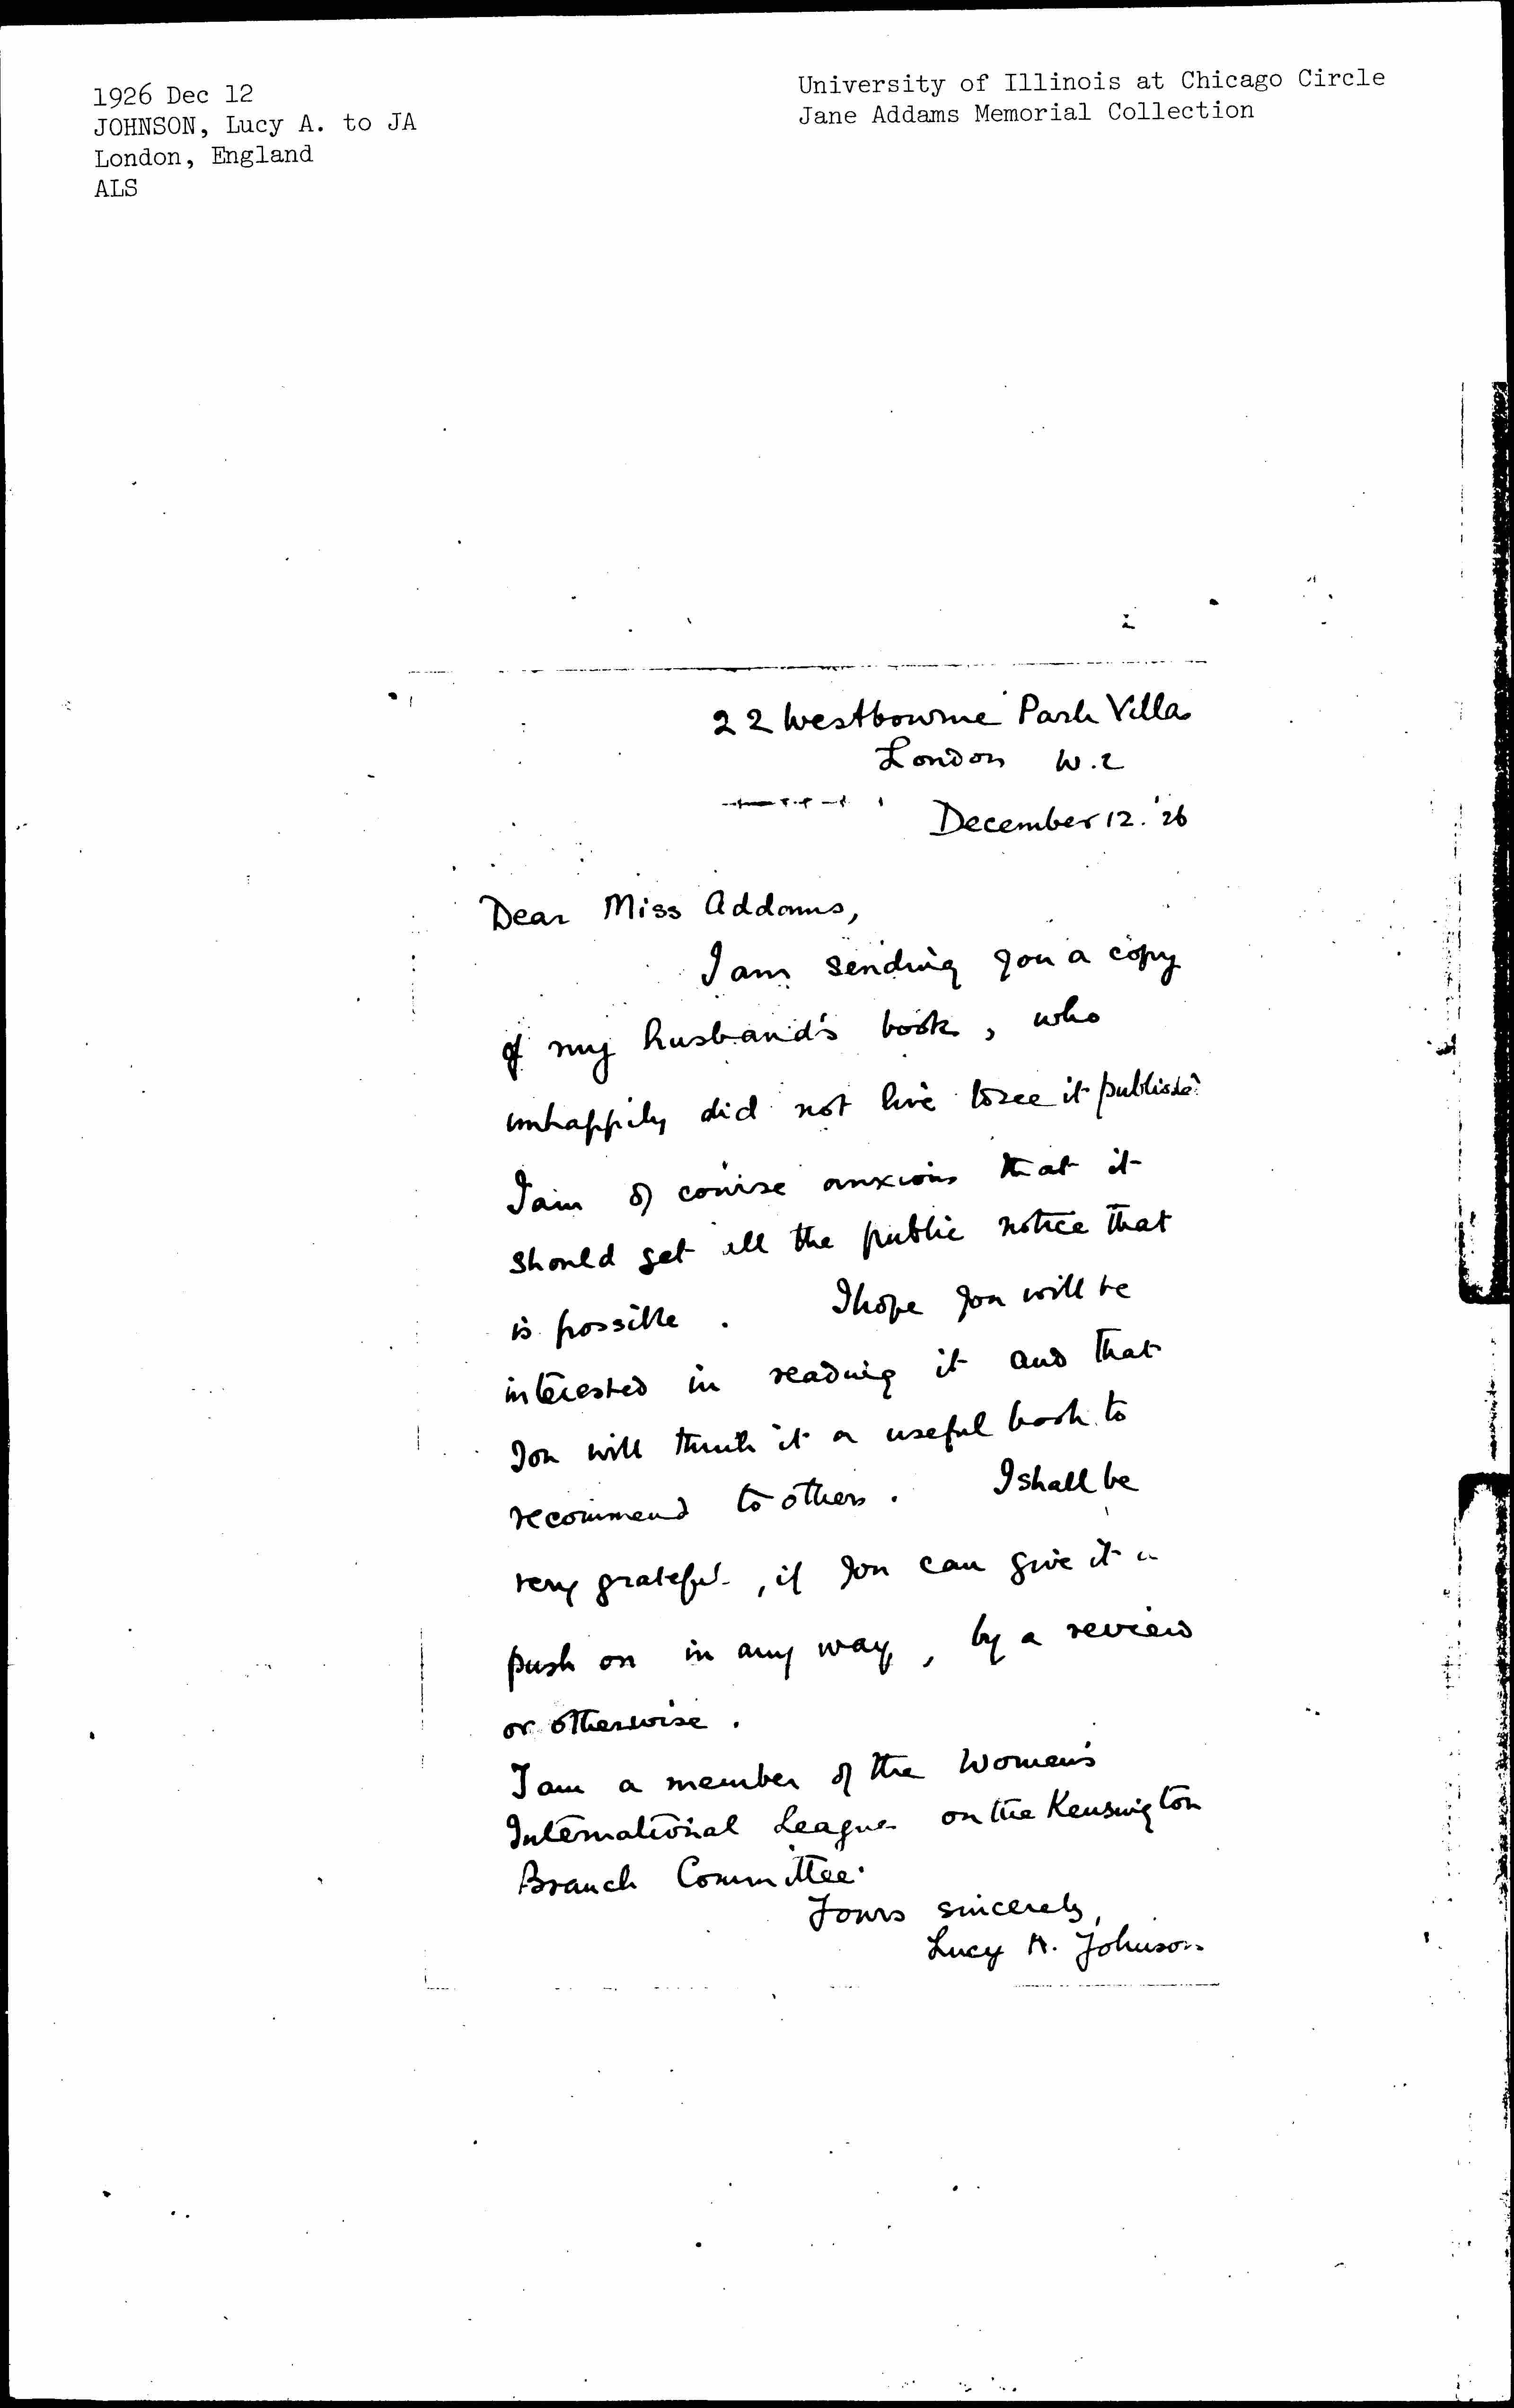 1926 Dec 12
JOHNSON, Lucy A. to JA
London, England
ALS
University of Illinois at Chicago Circle
Jane Addams Memorial Collection
22 Westbourne Park Villas
London W.2
December 12. '26
Dear Miss Addams,
I am sending you a copy
of my husband's book, who
unhappily did not live to see it published
I am of course anxious that it
should get all the public notice that
is possible. I hope you will be
interested in reading it and that
you will think it a useful book to
recommend to others. I shall be
very grateful, if you can give it a
push on in any way, by a review
or otherwise.
I am a member of the Women's
International League on the Kensington
Branch Committee.
Yours sincerely,
Lucy A. Johnson